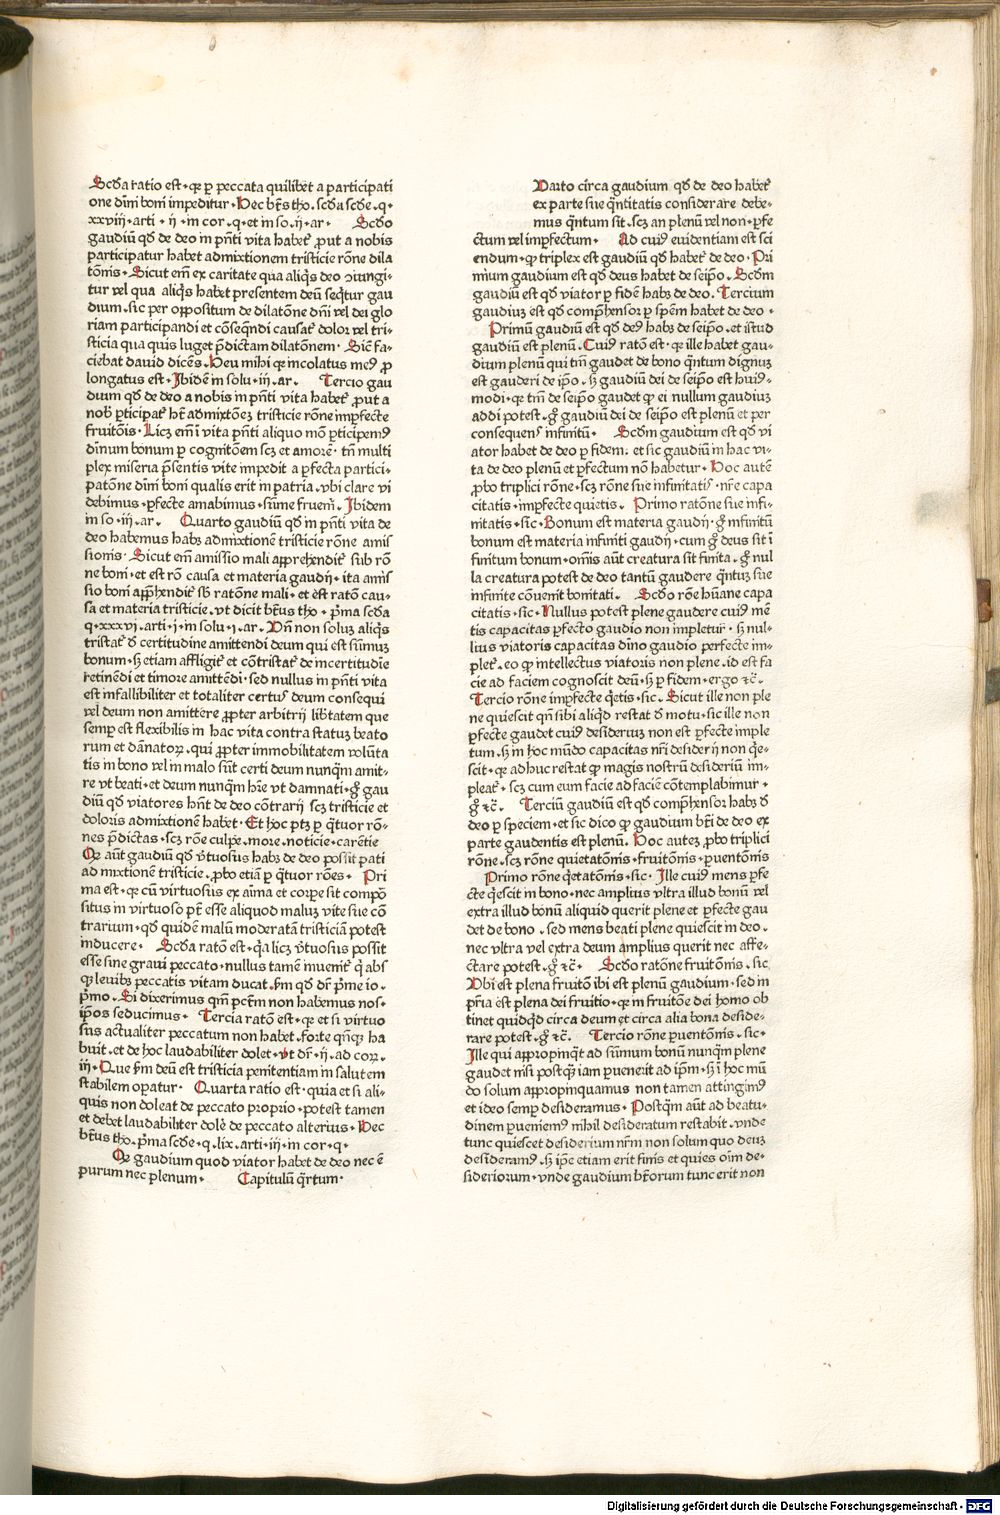 Scd̄a ratio est· qꝛ ꝑ peccata quilibet a participati
one diuīni boni impeditur· Hec bt̄s tho. scd̄a scd̄e· q·
xxviij· arti· ij· in cor· q· et in so· ij· ar· Scd̄o
gaudiū qd̄ de deo in pn̄ti vita habet᷒ ꝓut a nobis
participatur habet admixtionem tristicie rōne dila
tōnis· Sicut em̄ ex caritate qua aliqs deo ↄiungi-
tur vel qua aliqs habet presentem deū seq̄tur gau
dium· sic per oppositum de dilatōne dn̄i vel dei glo
riam participandi et cōseq̄ndi causat᷒ dolor vel tri-
sticia qua quis luget p̄dictam dilatōnem· Sic̄ fa-
ciebat dauid dicēs· Heu mihi qꝛ incolatus meꝰ ꝓ
longatus est· Ibidē in solu· iij· ar· Tercio gau
dium qd̄ de deo a nobis in pn̄ti vita habet᷒ ꝓut a
nob᷒ ꝑticipat᷒ hꝫ admixtōeꝫ tristicie rōne imꝑfecte
fruitōis· Licꝫ em̄ ī vita pn̄ti aliquo mō ꝑticipemꝰ
diuīnum bonum ꝑ cognitōem scꝫ et amorē· tn̄ multi
plex miseria p̄sentis vite impedit a ꝑfecta partici-
patōne diuīni boni qualis erit in patria· vbi clare vi
debimus· ꝑfecte amabimus· sūme fruem᷒· Ibidem
in so· iij· ar· Quarto gaudiū qd̄ in pn̄ti vita de
deo habemus habꝫ admixtionē tristicie rōne amis
sionis· Sicut em̄ amissio mali apprehendit᷒ sub rō
ne boni· et est rō causa et materia gaudij· ita amis
sio boni app̄hendit᷒ sb̄ ratōne mali· et est ratō cau-
sa et materia tristicie· vt dicit bt̄us tho· pͥma scd̄a
q· xxxvi· arti· j· in solu· j· ar· Vn̄ non soluꝫ aliqs
tristat᷒ d̄ certitudine amittendi deum qui est sūmuꝫ
bonum· sꝫ etiam affligit᷒ et cōtristat᷒ de incertitudīe
retinēdi et timore amittēdi· sed nullus in pn̄ti vita
est infallibiliter et totaliter certus deum consequi
vel deum non amittere ꝓpter arbitrij lib̄tatem que
semꝑ est flexibilis in hac vita contra statuꝫ beato
rum et dānatoꝝ· qui ꝓpter immobilitatem volūta
tis in bono vel in malo sūt certi deum nunq̄m amit-
re vt beati· et deum nunq̄m hīe vt damnati· gͦ gau
diū qd̄ viatores hn̄t de deo cōtrarij scꝫ tristicie et
doloris admixtionē habet· Et hoc ptꝫ ꝑ q̄tuor rō-
nes p̄dictas· scꝫ rōe culpe· more· noticie· carētie
Qꝛ aūt gaudiū qd̄ v̄tuosus habꝫ de deo possit pati
ad mixtionē tristicie· ꝓbo etiā ꝑ q̄tuor rōes· Pri
ma est· qꝛ cū virtuosus ex aīma et corꝑe sit compō
situs in virtuoso pt̄ esse aliquod maluꝫ vite sue cō
trarium· qd̄ quidē malū moderatā tristiciā potest
inducere· Scd̄a ratō est· qꝛ licꝫ v̄tuosus possit
esse sine graui peccato· nullus tamē inuenit᷒ qͥ absqꝫ
leuibꝫ peccatis vitam ducat· ẜm qd̄ dr̄· pͥme io·
pͥmo· Si dixerimus qm̄ pctm̄ non habemus nos-
ip̄os seducimus· Tercia ratō est· qꝛ et si virtuo
sus actualiter peccatum non habet· forte qn̄qꝫ ha
buit· et de hoc laudabiliter dolet· vt dr̄· ij· ad coꝝ·
iij· Que ẜm deū est tristicia penitentiam in salutem
stabilem oꝑatur· Quarta ratio est· quia et si ali-
quis non doleat de peccato proprio· potest tamen
et debet laudabiliter dolē de peccato alterius· Hec
bt̄us tho· pͥma scd̄e· q· lix· arti· iij· in cor· q·
Qꝛ gaudium quod viator habet de deo nec ē
purum nec plenum· Capitulū q̄rtum·
Varto circa gaudium qd̄ de deo habet᷒
ex parte sue q̄ntitatis considerare debe-
mus q̄ntum sit· scꝫ an plenū vel non· ꝑfe
ctum vel imꝑfectum· Ad cuiꝰ euidentiam est sci
endum· ꝙ triplex est gaudiū qd̄ habet᷒ de deo· Pri
mūm gaudium est qd̄ deus habet de seip̄o· Scd̄m
gaudiū est qd̄ viator ꝑ fidē habꝫ de deo· Tercium
gaudiuꝫ est qd̄ comp̄hensor ꝑ spem habet de deo·
Primū gaudiū est qd̄ deꝰ habꝫ de seip̄o· et istud
gaudiū est plenū· Cuiꝰ ratō est· qꝛ ille habet gau-
dium plenū qui tm̄ gaudet de bono q̄ntum dignuꝫ
est gauderi de ip̄o· sꝫ gaudiū dei de seip̄o est huiꝰ-
modi· qꝛ tm̄ de seip̄o gaudet ꝙ ei nullum gaudiuꝫ
addi potest· gͦ gaudiū dei de seip̄o est plenū et per
consequens infinitū· Scd̄m gaudium est qd̄ vi
ator habet de deo ꝑ fidem· et sic gaudiū in hac vi-
ta de deo plenū et ꝑfectum nō habetur· Hoc autē
ꝓbo triplici rōne· scꝫ rōne sue infinitatis· nr̄e capa
citatis· imꝑfecte quietis· Primo ratōne sue infi-
nitatis· sic· Bonum est materia gaudij· gͦ infinitū
bonum est materia infiniti gaudij· cum gͦ deus sit ī
finitum bonum· om̄is aūt creatura sit finita· gͦ nul
la creatura potest de deo tantū gaudere q̄ntuꝫ sue
infinite cōuenit bonitati· Scd̄o rōe hūane capa
citatis· sic· Nullus potest plene gaudere cuiꝰ mē
tis capacitas ꝑfecto gaudio non impletur· sꝫ nul-
lius viatoris capacitas diuīno gaudio perfecte im-
plet᷒· eo ꝙ intellectus viatoris non plene· id est fa
cie ad faciem cognoscit deū· sꝫ ꝑ fidem· ergo ⁊c̄·
Tercio rōne imꝑfecte q̄etis· sic· Sicut ille non ple
ne quiescit qn̄ sibi aliqd̄ restat d̄ motu· sic ille non
ꝑfecte gaudet cuiꝰ desideriuꝫ non est ꝑfecte imple
tum· sꝫ in hoc mūdo capacitas nr̄i desiderij non q̄e-
scit· qꝛ adhuc restat ꝙ magis nostrū desideriū im-
pleat᷒· scꝫ cum eum facie ad faciē cōtemplabimur·
gͦ ⁊c̄· Terciū gaudiū est qd̄ comp̄hensor habꝫ d̄
deo ꝑ speciem· et sic dico ꝙ gaudium bt̄i de deo ex
parte gaudentis est plenū· Hoc auteꝫ ꝓbo triplici
rōne· scꝫ rōne quietatōnis· fruitōnis· ꝑuentōnis
Primo rōne q̄etatōnis· sic· Ille cuiꝰ mens ꝑfe
cte q̄escit in bono· nec amplius vltra illud bonū vel
extra illud bonū aliquid querit plene et ꝑfecte gau
det de bono· sed mens beati plene quiescit in deo·
nec vltra vel extra deum amplius querit nec affe-
ctare potest· gͦ ⁊c̄· Scd̄o ratōne fruitōnis· sic
Vbi est plena fruitō ibi est plenū gaudium· sed in
pr̄ia est plena dei fruitio· qꝛ in fruitōe dei homo ob
tinet quidq̄d circa deum et circa alia bona deside-
rare potest· gͦ ⁊c̄· Tercio rōne ꝑuentōnis· sic·
Ille qui appropinq̄t ad sūmum bonū nunq̄m plene
gaudet nisi postq̄ꝫ iam ꝑuenerit ad ip̄m· sꝫ ī hoc mū
do solum appropinquamus non tamen attingimꝰ
et ideo semꝑ desideramus· Postq̄m aūt ad beatu-
dinem ꝑueniemꝰ nihil desideratum restabit· vnde
tunc quiescet desiderium nr̄m non solum quo deuꝫ
desideramꝰ· sꝫ ip̄e etiam erit finis et quies oīm de-
sideriorum· vnde gaudium bt̄orum tunc erit non
Digitalisierung gefördert durch die Deutsche Forschungsgemeinschaft - DFG